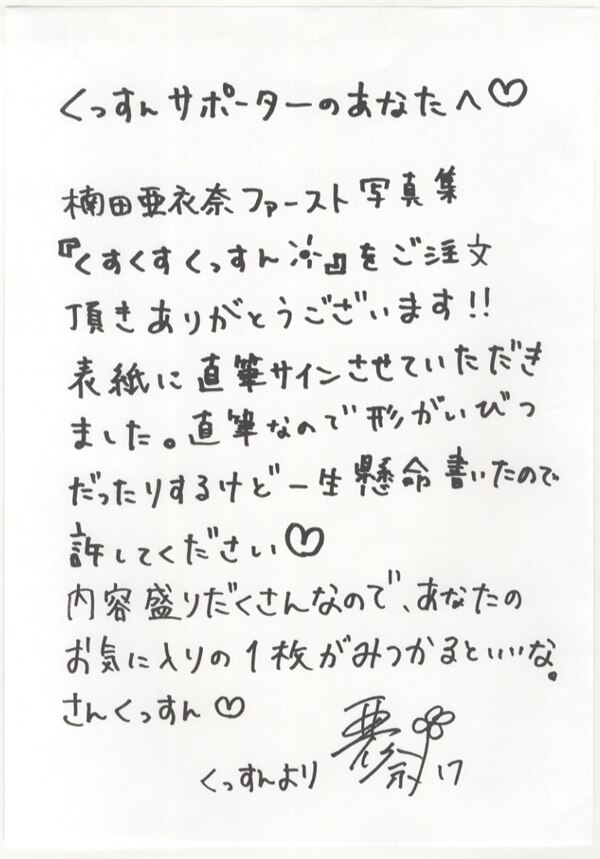 くっすんサポーターのあなたへ♡
楠田亜衣奈ファースト写真集
『くすくすくっすん☼』をご注文
頂きありがとうございます!!
表紙に直筆サインさせていただき
ました。直筆なので形がいびつ
だったりするけど一生懸命書いたので
許してください♡
内容盛りだくさんなので、あなたの
お気に入りの1枚がみつかるといいな。
さんくっすん♡
くっすんより
17